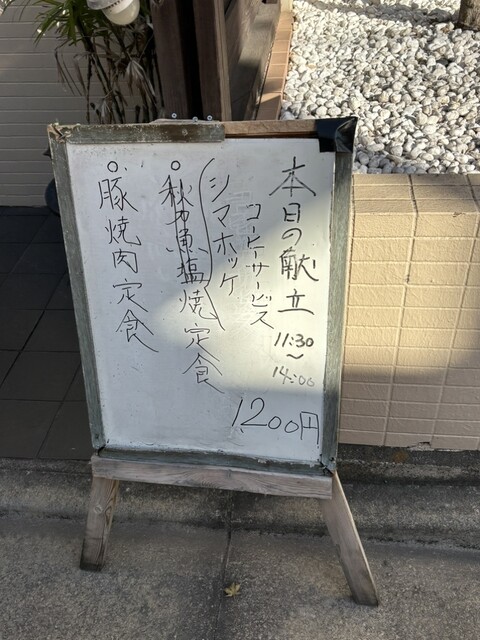 本日の献立
11:30
〜
14:00
コーヒーサービス
シマホッケ
○秋刀魚塩焼定食
○豚焼肉定食
1200円